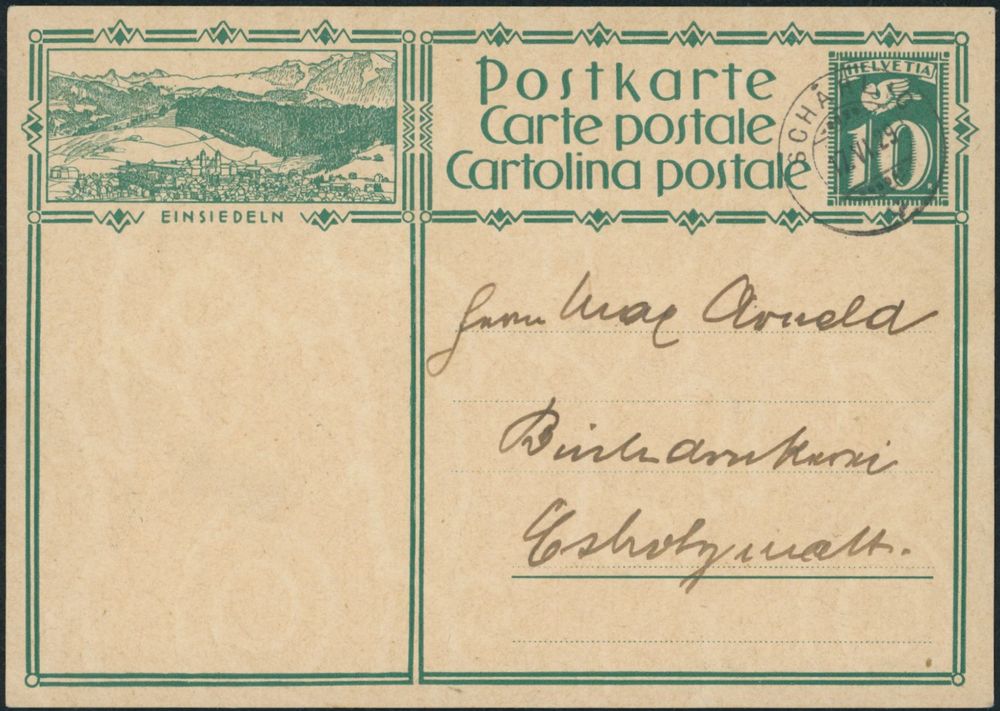 EINSIEDELN
Postkarte
Carte postale
Cartolina postale
HELVETIA
10
Herrn Max Arnold
Buchdruckerei
Escholzmatt.